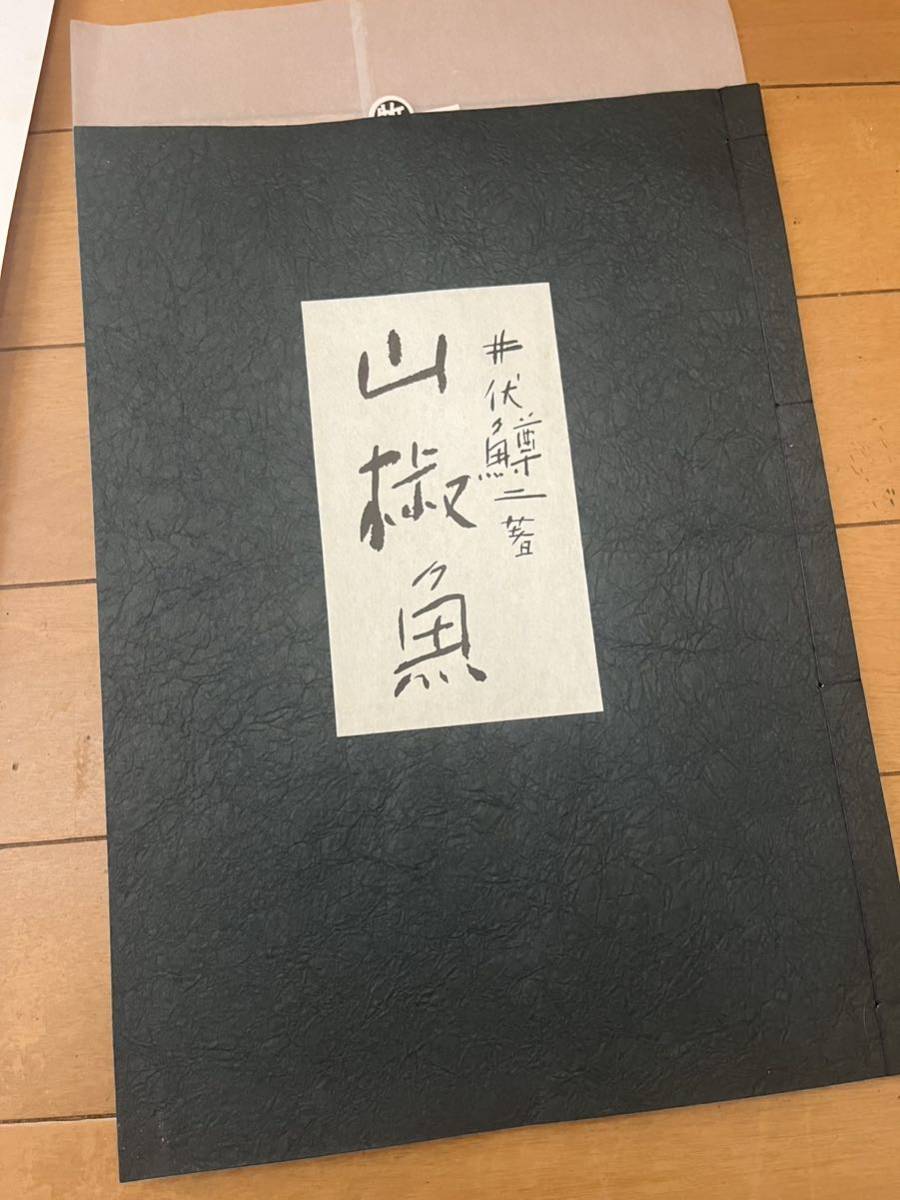 井伏鱒二著
山椒魚